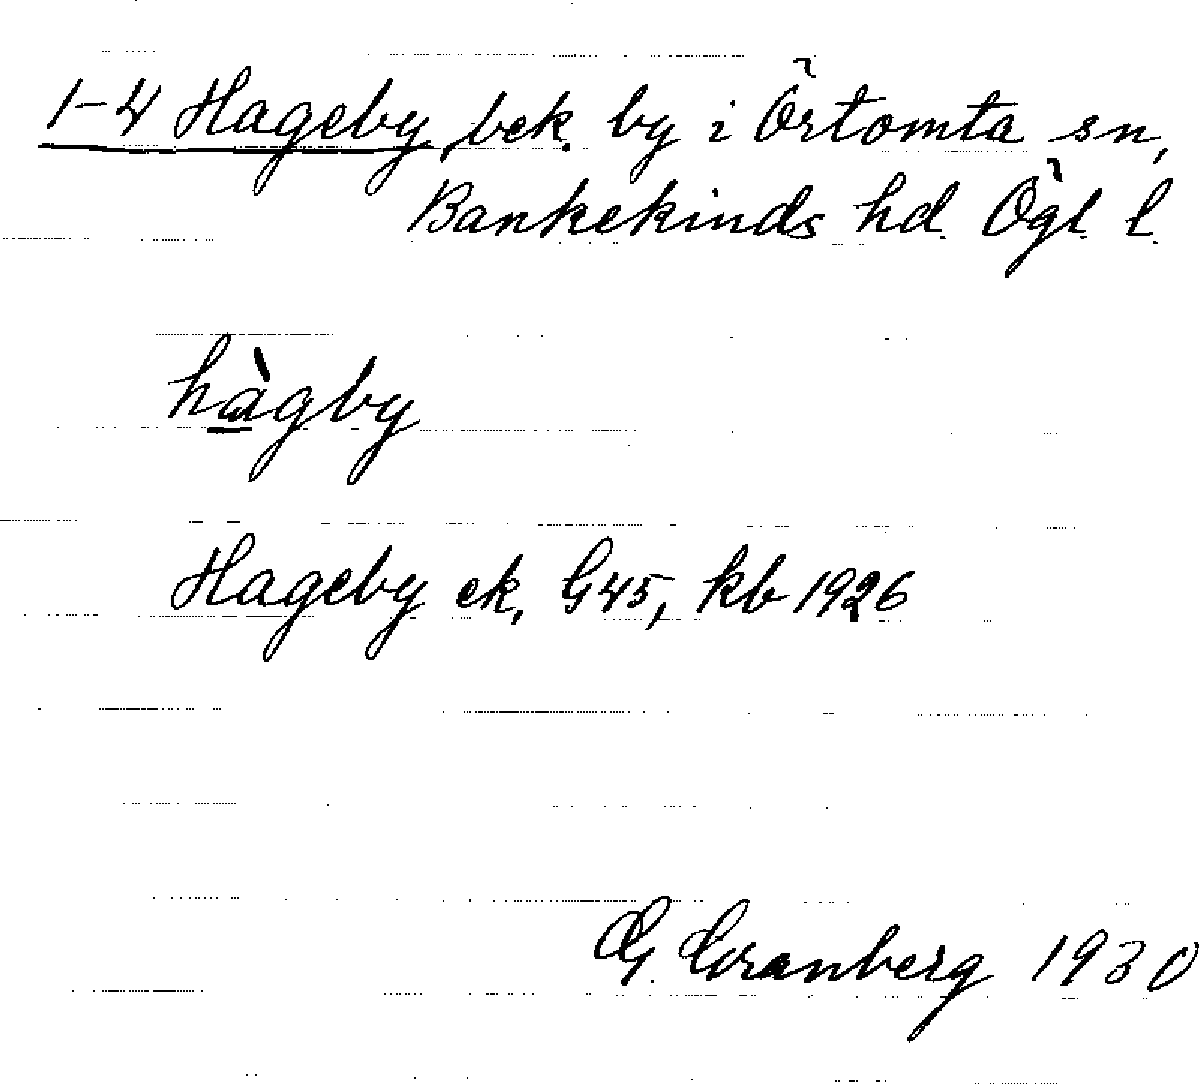 1-4 Hageby, bek. by i Örtomta sn,
Bankekinds hd. Ögl. l.
hàgby
Hageby ek, G45, kb 1926
G. Granberg 1930